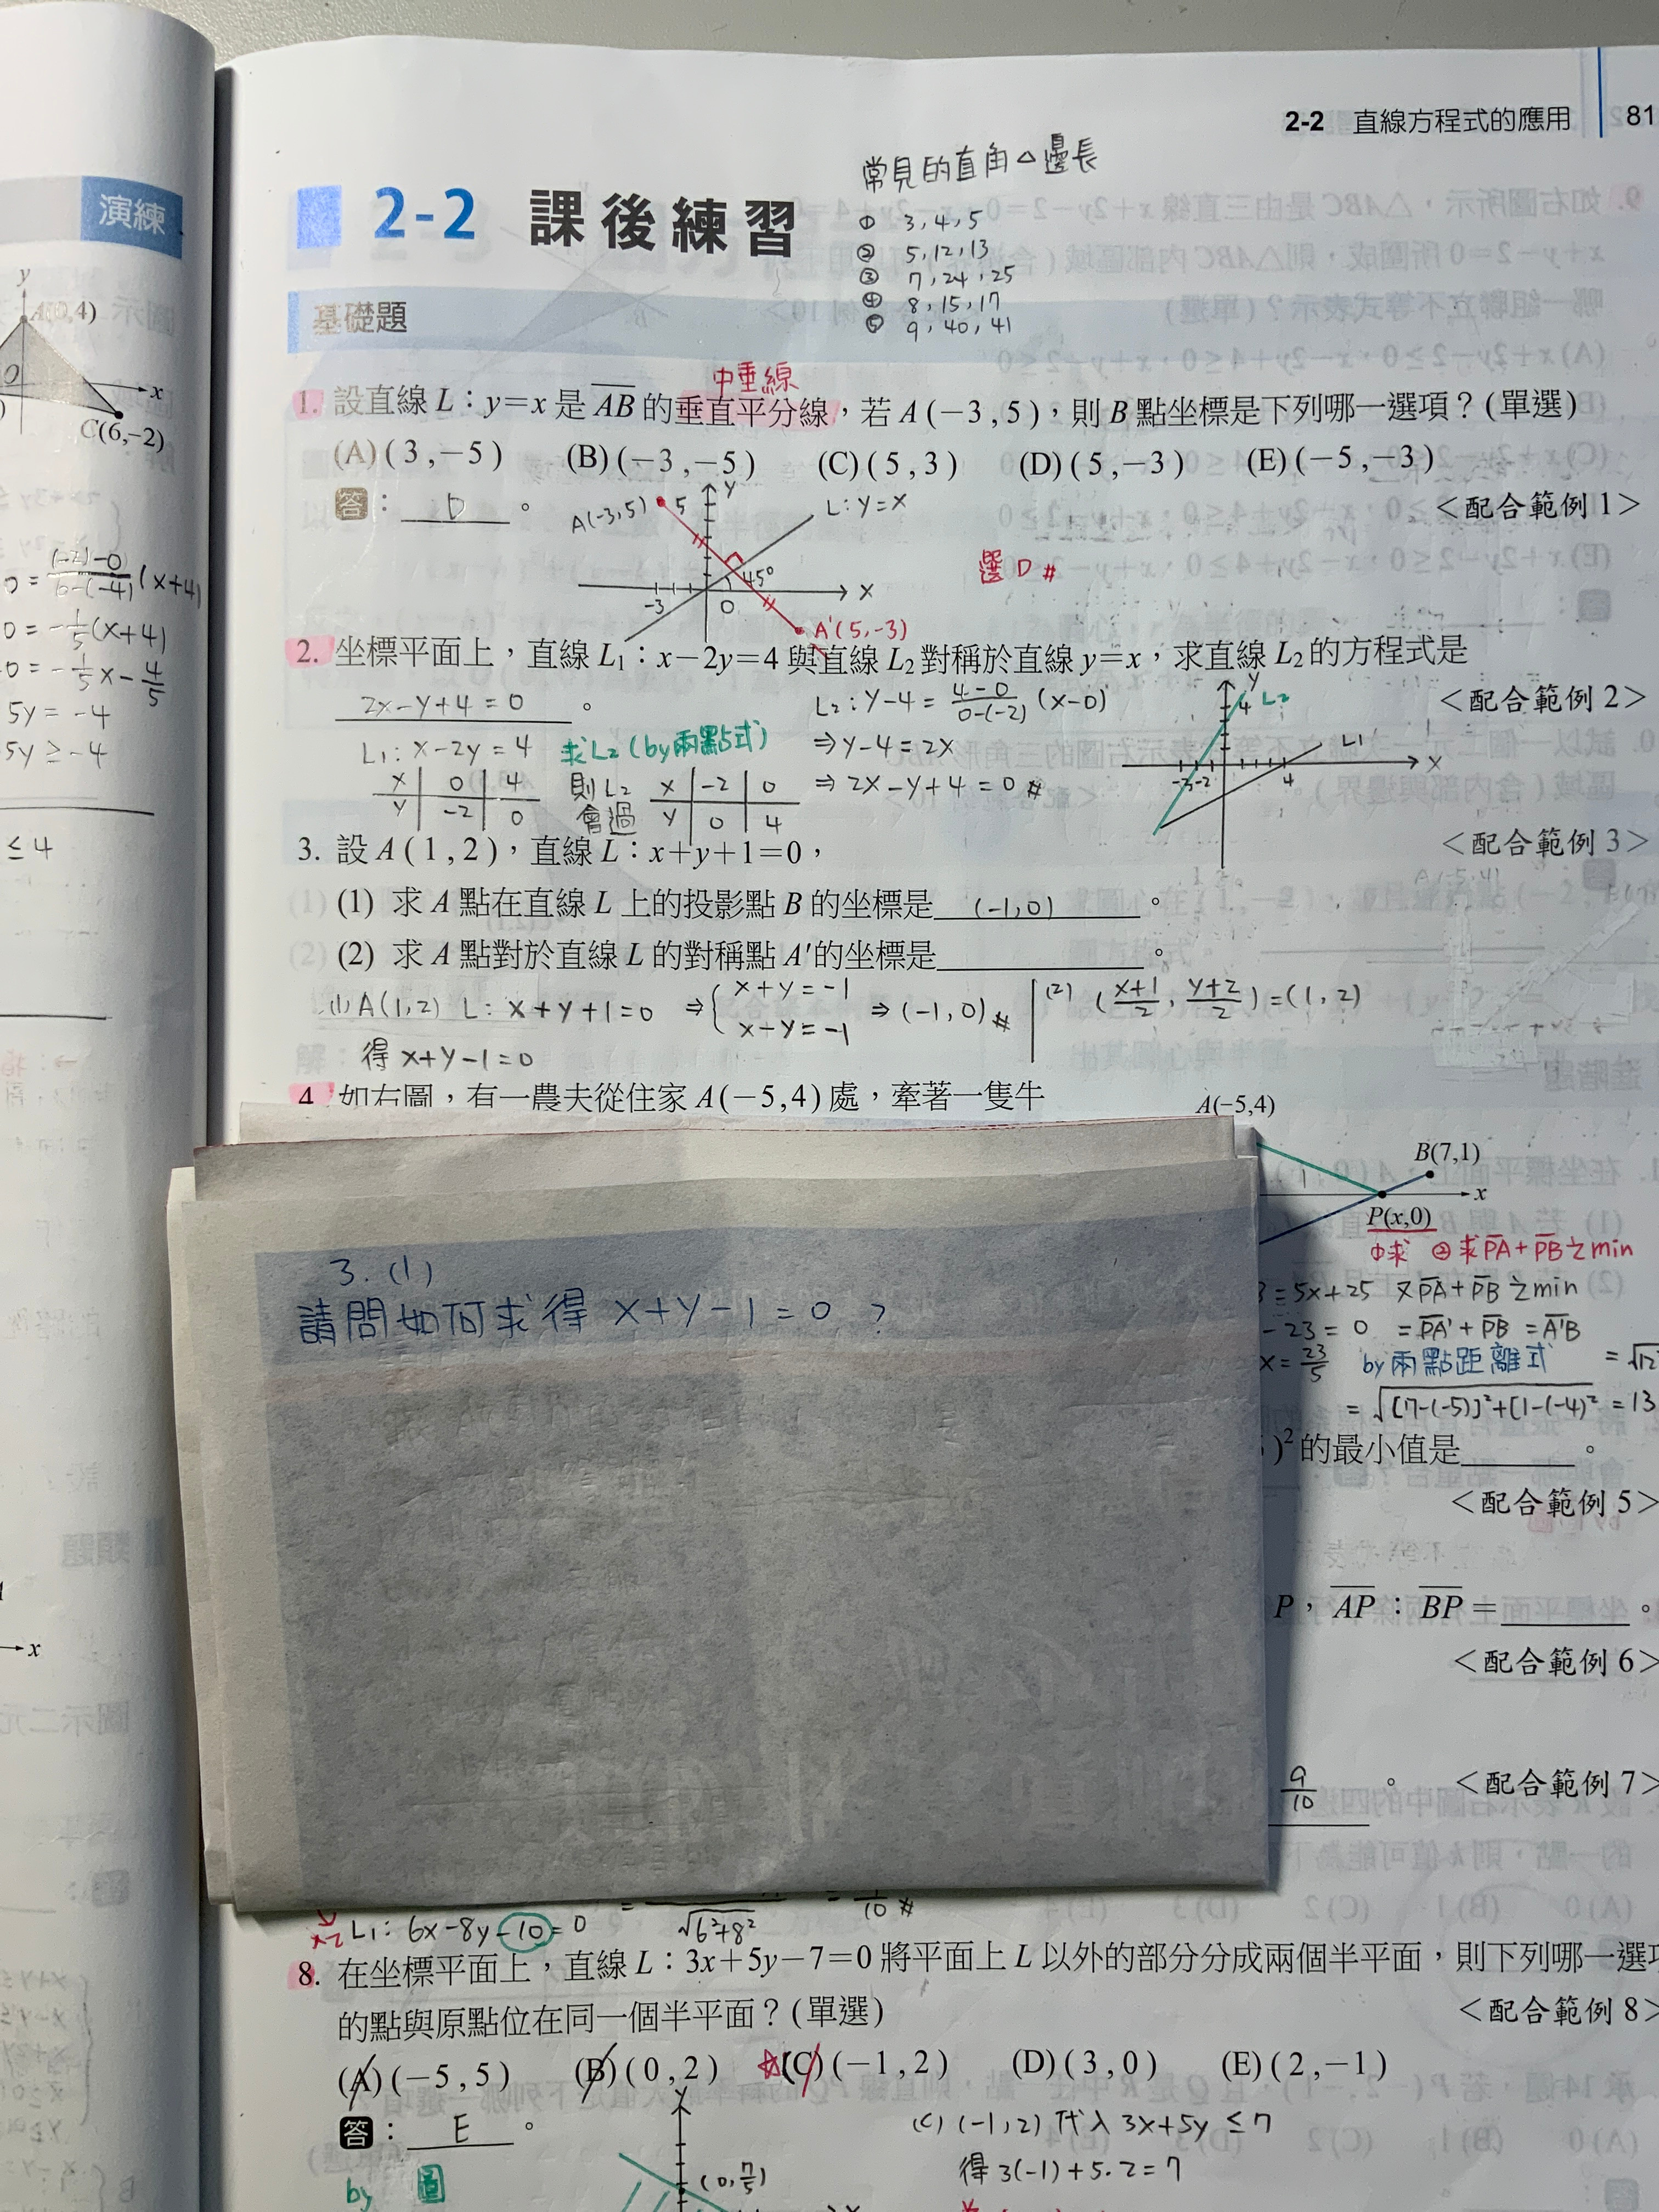 2-2 直線方程式的應用 81
常見的直角△邊長
① 3,4,5
② 5,12,13
③ 7,24,25
④ 8,15,17
⑤ 9,40,41
2-2 課後練習
基礎題
中垂線
1. 設直線 L：y=x 是 AB 的垂直平分線，若 A(−3,5)，則 B 點坐標是下列哪一選項？(單選)
(A)(3,−5) (B)(−3,−5) (C)(5,3) (D)(5,−3) (E)(−5,−3)
答： D 。
<配合範例 1>
A(-3,5) 5 y L:y=x
選D #
-3 0 45° x
A'(5,-3)
2. 坐標平面上，直線 L₁：x−2y=4 與直線 L₂ 對稱於直線 y=x，求直線 L₂ 的方程式是
2x-y+4=0 。
<配合範例 2>
L₂: y-4 = (4-0)/(0-(-2)) (x-0)
L₁: x-2y=4 求L₂(by兩點式) ⇒ y-4=2x
x 0 4 則L₂ x -2 0 ⇒ 2x-y+4=0 #
y -2 0 會過 y 0 4
y 4 L2
L1
-3 -2 4 x
3. 設 A(1,2)，直線 L：x+y+1=0，
<配合範例 3>
(1) 求 A 點在直線 L 上的投影點 B 的坐標是 (-1,0) 。
(2) 求 A 點對於直線 L 的對稱點 A′的坐標是 。
(1) A(1,2) L: x+y+1=0 ⇒ { x+y=-1 x-y=-1 ⇒ (-1,0) # (2) ((x+1)/2, (y+2)/2) = (1,2)
得 x+y-1=0
4. 如右圖，有一農夫從住家 A(−5,4) 處，牽著一隻牛
A(−5,4)
B(7,1)
1 x
P(x,0)
①求 ②求PA+PB之min
=5x+25 又PA+PB之min
-23=0 =PA'+PB=A'B
x=23/5 by兩點距離式 =√12
=√[7-(-5)]²+[1-(-4)² =13
)²的最小值是 。
<配合範例 5>
P，AP：BP= 。
<配合範例 6>
9/10 。 <配合範例 7>
3.(1)
請問如何求得 x+y-1=0 ?
L₁: 6x-8y-10=0 √6²+8² 10 #
8. 在坐標平面上，直線 L：3x+5y−7=0 將平面上 L 以外的部分分成兩個半平面，則下列哪一選項
的點與原點位在同一個半平面？(單選)
<配合範例 8>
(A)(−5,5) (B)(0,2) (C)(−1,2) (D)(3,0) (E)(2,−1)
答： E 。
(C) (-1,2) 代入 3x+5y ≤ 7
得 3(-1)+5·2=7
by 圖
y
(0,7/5)
演練
y
A(0,4)
O x
C(6,−2)
0=((-2)-0)/(6-(-4)) (x+4)
0=-1/5(x+4)
0=-1/5x-4/5
5y=-4
5y≥-4
≤4
x